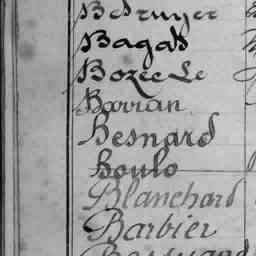 Bagab
Bozec Le
Barran
Besnard
Boulo
Blanchard
Barbier